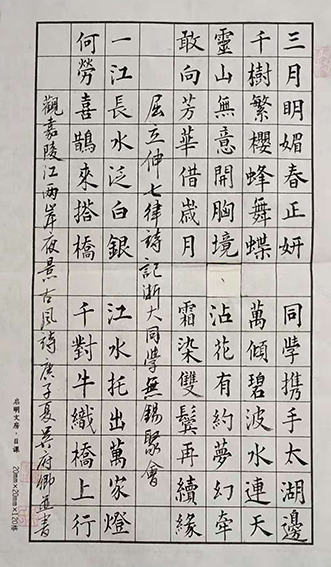 三月明媚春正妍　同學携手太湖邊
千樹繁櫻蜂舞蝶　萬傾碧波水連天
靈山無意開胸境、沾花有約夢幻牽
敢向芳華借歲月　霜染雙鬢再續緣
屈立伸七律詩記浙大同學無錫聚會
一江長水泛白銀　江水托出萬家燈
何勞喜鵲來搭橋　千對牛織橋上行
觀嘉陵江兩岸夜景古風詩庚子夏吳府卿並書
启明文房·日课 20mm×20mm×126格